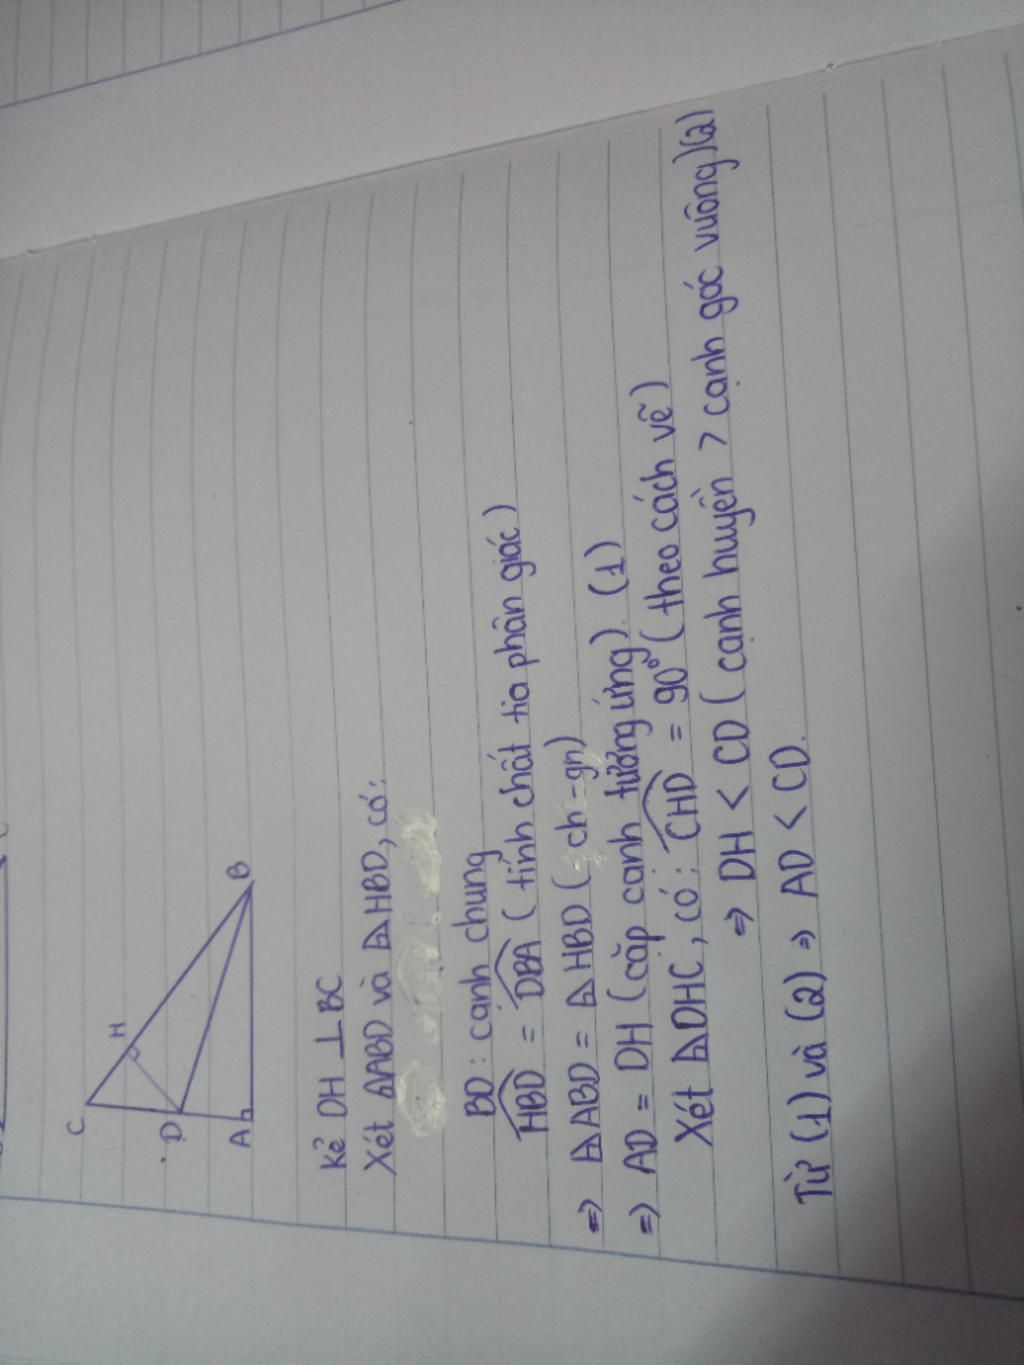 C
H
D
A
B
Kẻ DH ⊥ BC
Xét ⊿ABD và ⊿HBD, có:
BD: cạnh chung
HBD = DBA (tính chất tia phân giác)
=> ⊿ABD = ⊿HBD (ch-gn)
=> AD = DH (cặp cạnh tương ứng). (1)
Xét ⊿DHC, có: CHD = 90° (theo cách vẽ)
=> DH < CD (cạnh huyền > cạnh góc vuông) (2)
Từ (1) và (2) => AD < CD.